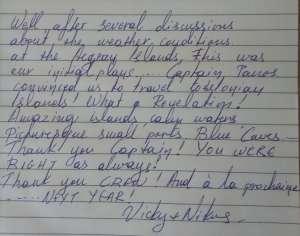 Well after several discussions
about the weather conditions
at the Aegean Islands, this was
our initial plans... Captain Tassos
convinced us to travel to Ionian
Islands! What a Revelation!
Amazing islands calm waters
Picturesque small ports. Blue Caves...
Thank you Captain! YOU WERE
RIGHT as always!
Thank you CREW! And à la prochaine
..... NEXT YEAR!
Vicky + Nikos